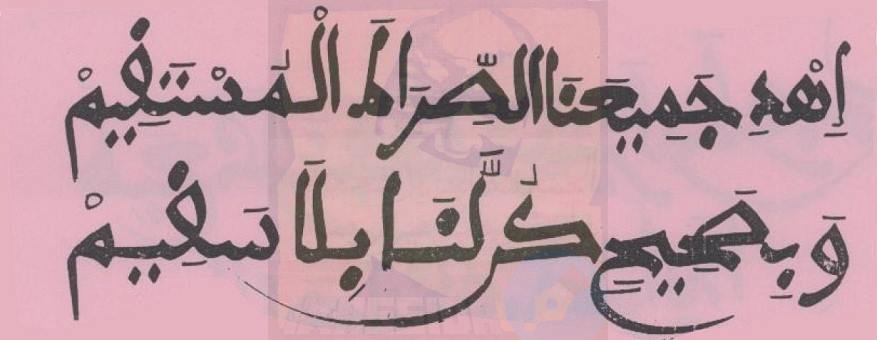 اِهْدِ جَمِيعَنَا الصِّرَاطَ الْمُسْتَقِيمْ
وَبِصَحِيحٍ كُن لَّنَا بِلَا سَقِيمْ